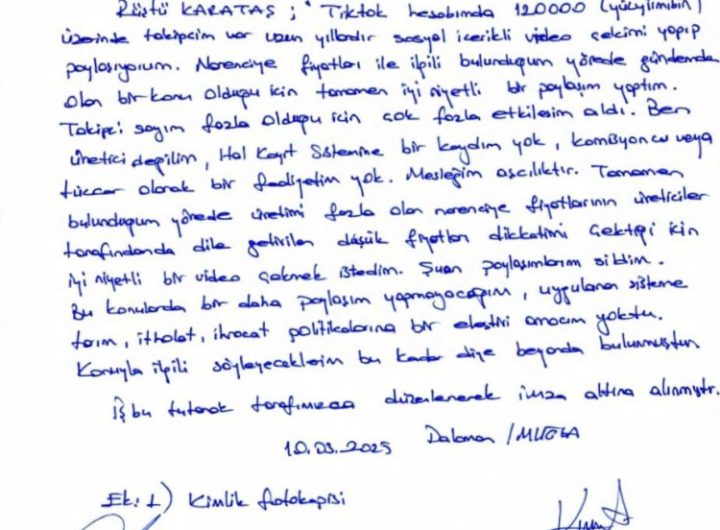 Rüştü KARATAŞ ; " Tiktok hesabımda 120000 (yüzyirmibin)
üzerinde takipcim var uzun yıllardır sosyal icerikli video çekimi yapıp
paylaşıyorum. Narenciye fiyatları ile ilgili bulunduğum yörede gündemde
olan bir konu olduğu için tamamen iyi niyetli bir paylaşım yaptım.
Takipçi sayım fazla olduğu için çok fazla etkileşim aldı. Ben
üretici değilim, Hal Kayıt Sistemine bir kaydım yok, komisyoncu veya
tüccar olarak bir faaliyetim yok. Mesleğim aşcılıktır. Tamamen
bulunduğum yörede üretimi fazla olan narenciye fiyatlarının üreticiler
tarafındanda dile getirilen düşük fiyatlar dikkatimi çektiği için
iyi niyetli bir video çekmek istedim. Şuan paylaşımlarım sildim.
Bu konularda bir daha paylaşım yapmayacağım, uygulanan sisteme
tarım, ithalat, ihracat politikalarına bir eleştiri amacım yoktu.
Konuyla ilgili söyleyeceklerim bu kadar diye beyanda bulunmuştur.
İş bu tutanak tarafımızca düzenlenerek imza altına alınmıştır.
10.03.2025 Dalaman / MUĞLA
Ek: 1) Kimlik fotokopisi